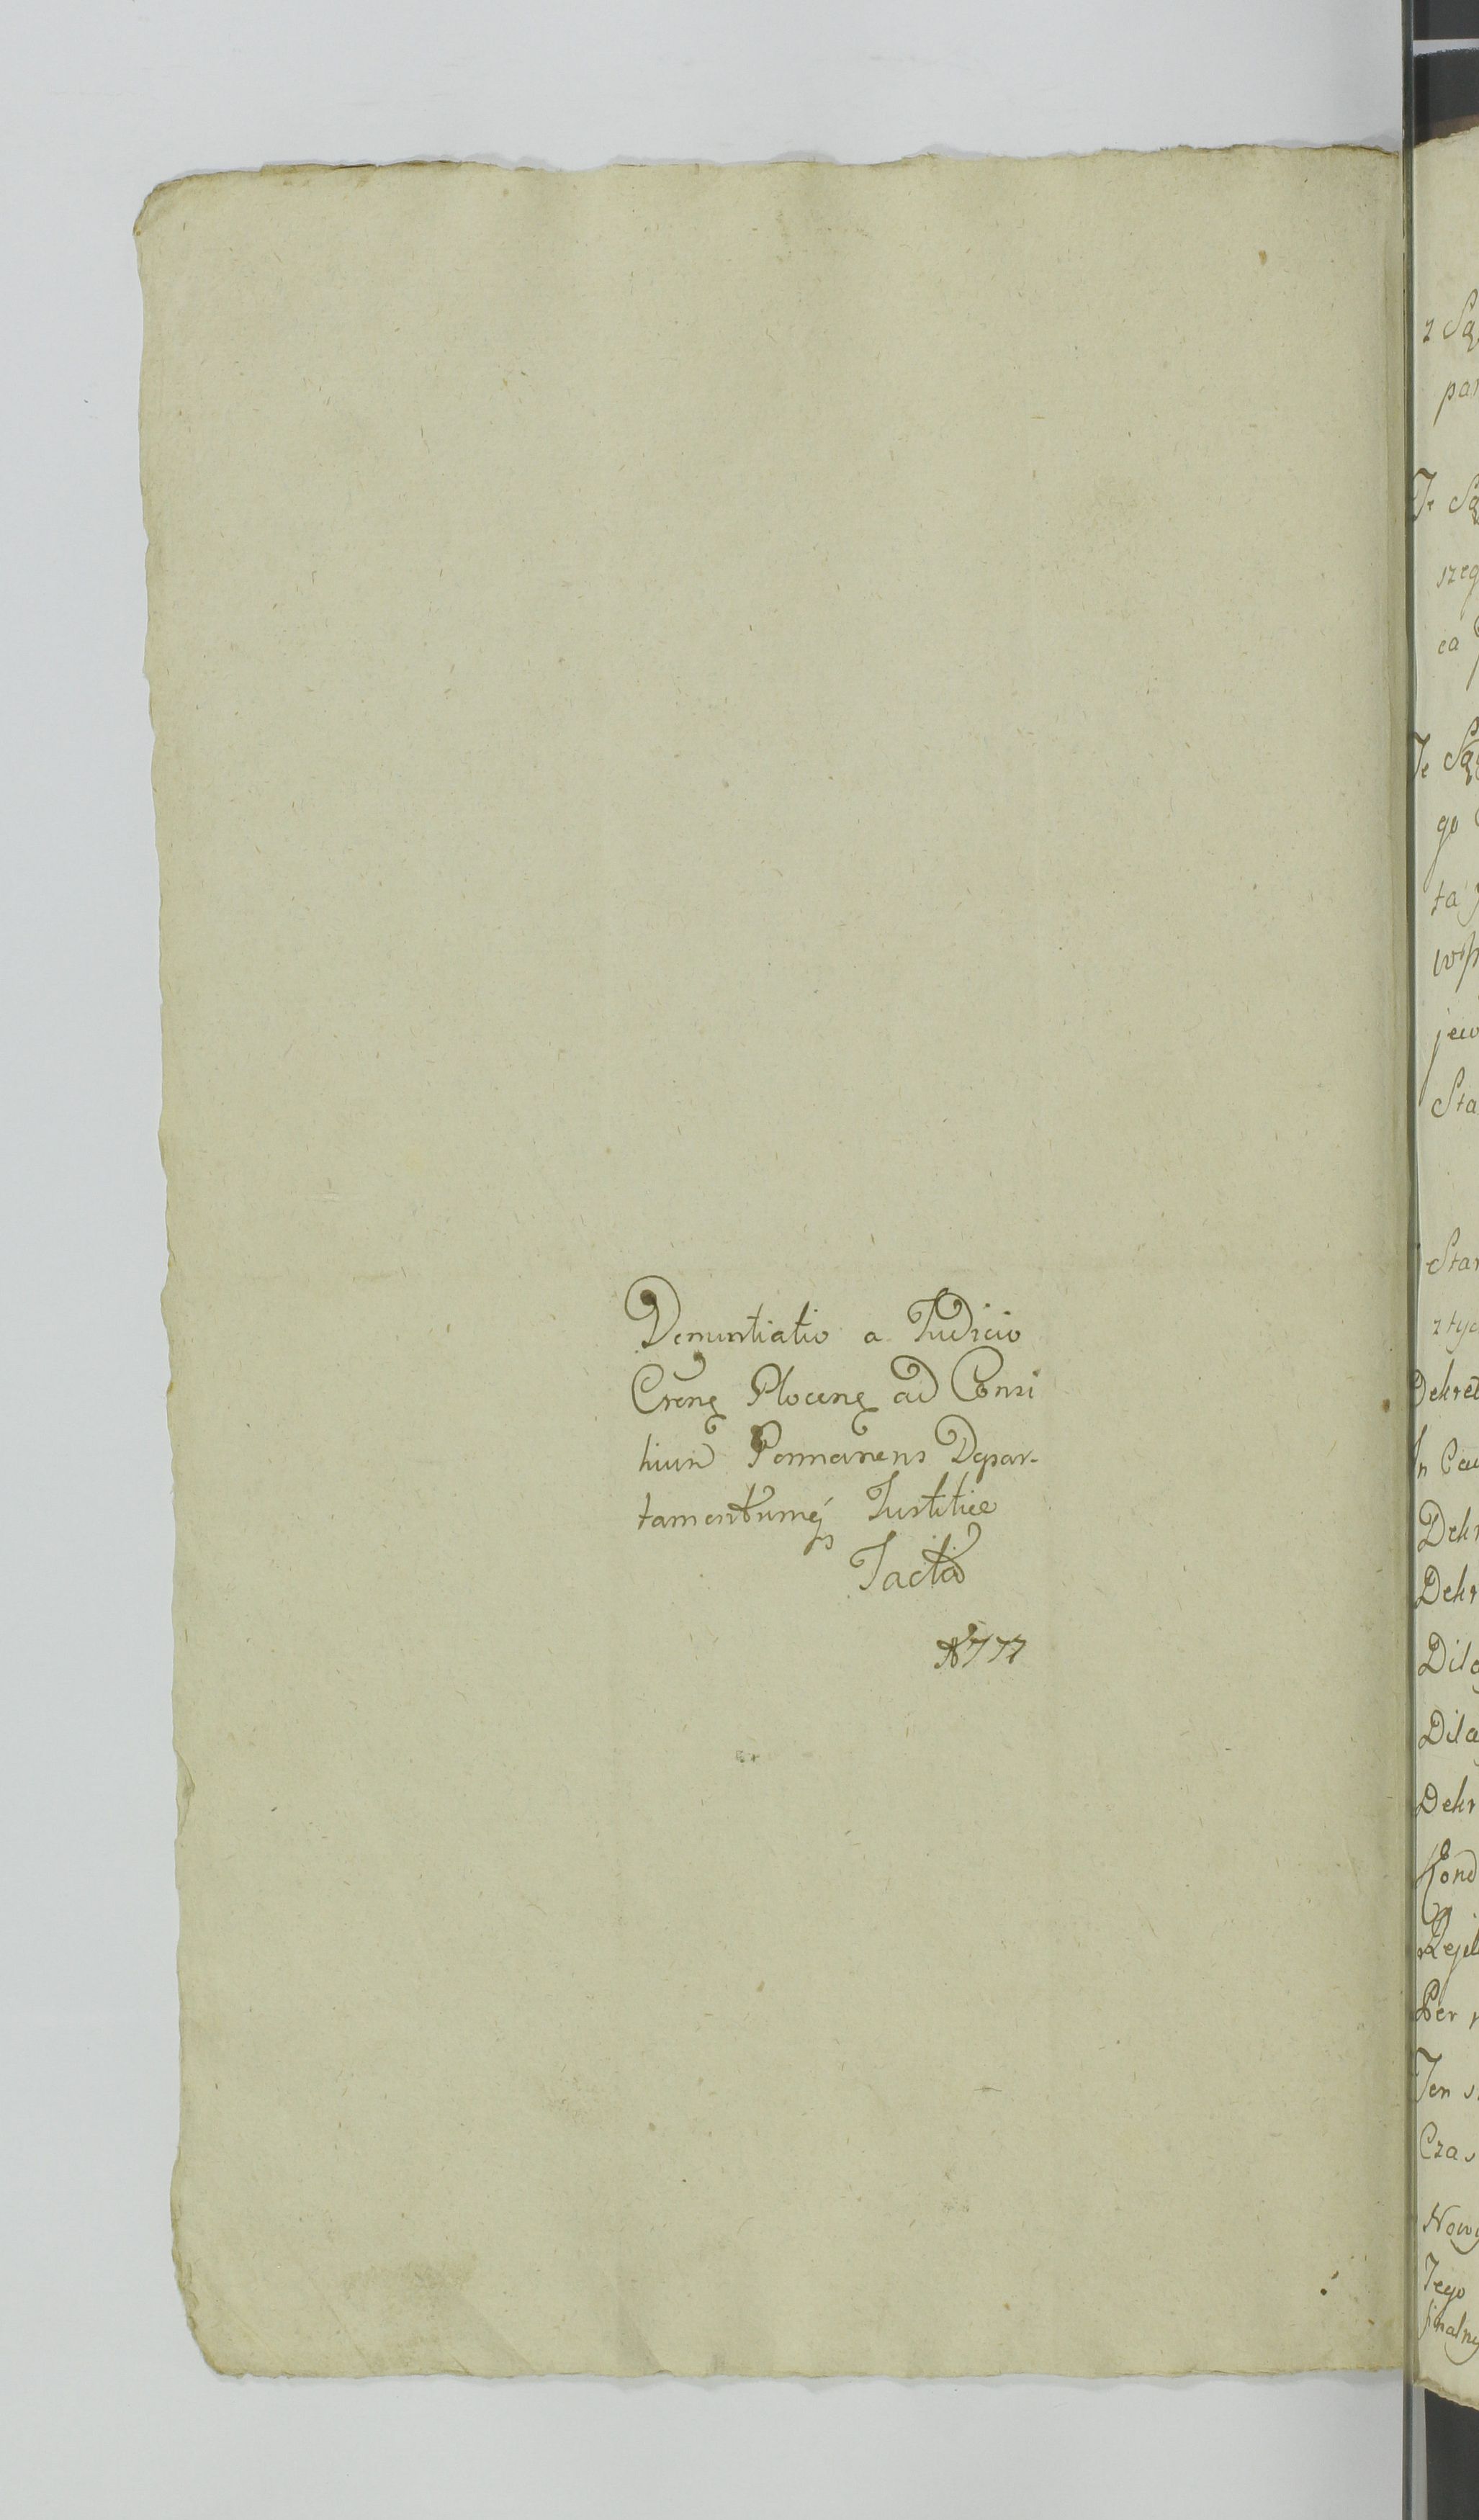 Denuntiatio a Judicio
Crenę Plocenę ad Consi
lium Permanens Depar-
tamentumq̨ Justitiae
Facta
N 777
z Są
par
Te Są
szeg
ca
Te Są
go
ta
wp
jew
Sta
Star
z tyc
Dekret
In Cau
Dekr
Dekr
Dila
Dila
Dekr
Cond
Rejes
Per
Ten
Czas
Nowy
Tego
finalny